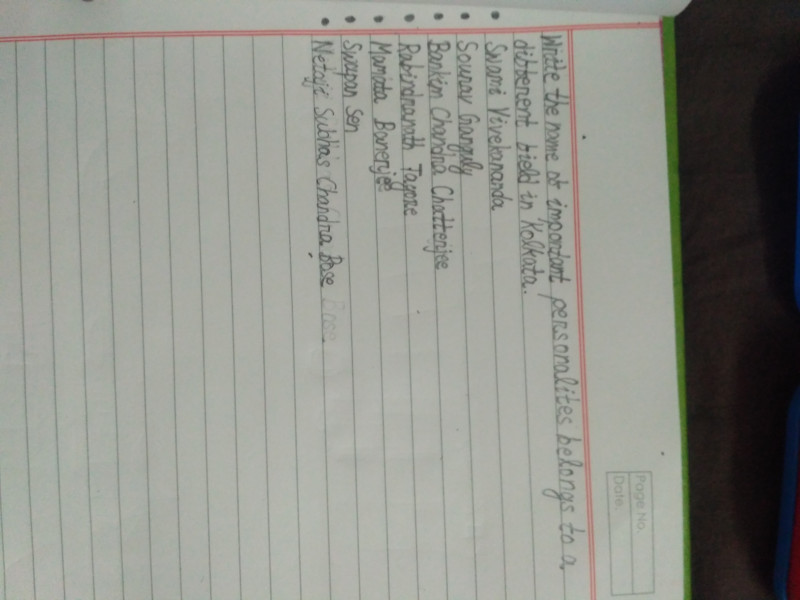 Page No.
Date:
Write the name of important personalites belongs to a
different field in Kolkata.
Swami Vivekananda
Sourav Ganguly
Bankim Chandra Chatterjee
Rabindranath Tagore
Mamata Banerjee
Swapan Sen
Netaji Subhas Chandra Bose